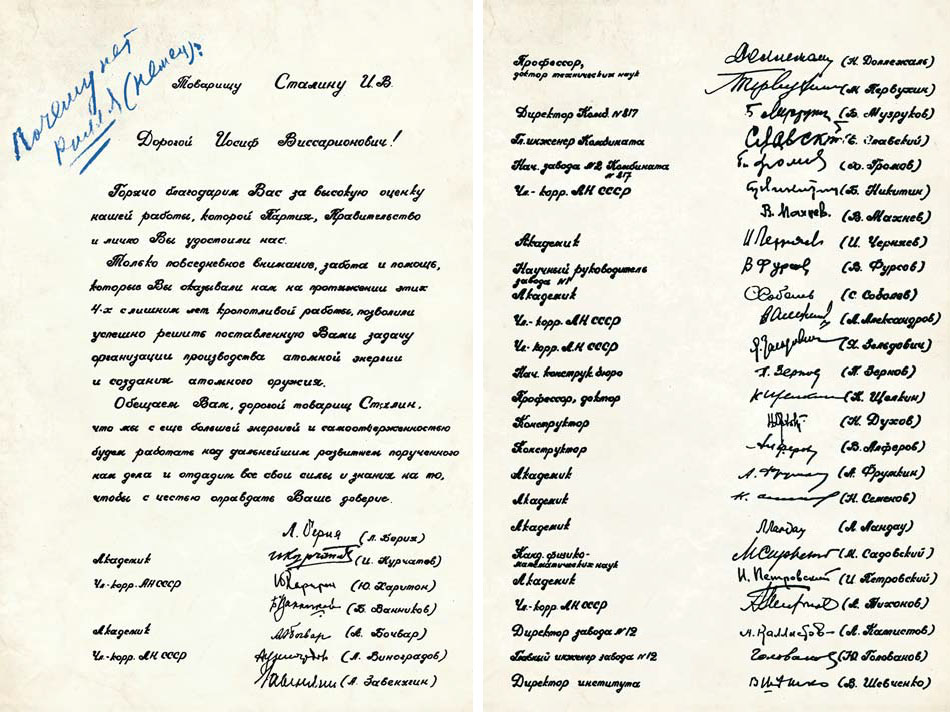 Почему нет
Рилля (немец)?
Товарищу Сталину И.В.
Дорогой Иосиф Виссарионович!
Горячо благодарим Вас за высокую оценку
нашей работы, которой Партия, Правительство
и лично Вы удостоили нас.
Только повседневное внимание, забота и помощь,
которые Вы оказывали нам на протяжении этих
4-х с лишним лет кропотливой работы, позволили
успешно решить поставленную Вами задачу
организации производства атомной энергии
и создания атомного оружия.
Обещаем Вам, дорогой товарищ Сталин,
что мы с еще большей энергией и самоотверженностью
будем работать над дальнейшим развитием порученного
нам дела и отдадим все свои силы и знания на то,
чтобы с честью оправдать Ваше доверие.
Л. Берия (Л. Берия)
Академик И Курчатов (И. Курчатов)
Чл.-корр. АН СССР Ю Харитон (Ю. Харитон)
Б Ванников (Б. Ванников)
Академик А Бочвар (А. Бочвар)
Чл.-корр. АН СССР А Виноградов (А. Виноградов)
Завенягин (А. Завенягин)
Профессор,
доктор технических наук Доллежаль (Н. Доллежаль)
Первухин (М. Первухин)
Директор Комб. №817 Б. Музруков (Б. Музруков)
Гл. инженер Комбината Славский (Е. Славский)
Нач. завода №2 Комбината
№817 Громов (Ф. Громов)
Чл.-корр. АН СССР Никитин (Б. Никитин)
В. Махнев. (В. Махнев)
Академик И Черняев (И. Черняев)
Научный руководитель
завода №1 В Фурсов (В. Фурсов)
Академик С Соболев (С. Соболев)
Чл.-корр. АН СССР (А. Александров)
Чл.-корр. АН СССР Я. Зельдович (Я. Зельдович)
Нач. конструк. бюро П. Зернов (П. Зернов)
Профессор, доктор К Щелкин (К. Щелкин)
Конструктор Н Духов (Н. Духов)
Конструктор Алферов (В. Алферов)
Академик А. Фрумкин (А. Фрумкин)
Академик Н. Семенов (Н. Семенов)
Академик Ландау (Л. Ландау)
Канд. физико-
математических наук М Садовский (М. Садовский)
Академик И. Петровский (И. Петровский)
Чл.-корр. АН СССР А Тихонов (А. Тихонов)
Директор завода №12 А. Каллистов (А. Каллистов)
Главный инженер завода №12 Голованов (Ю. Голованов)
Директор института В Шевченко (В. Шевченко)